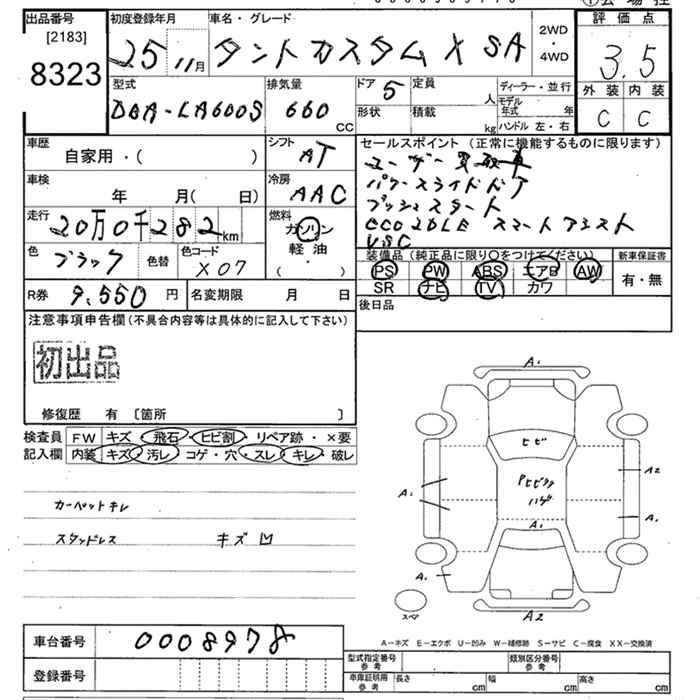 出品番号 初度登録年月 車名・グレード 評価点
[2183] 2WD
8323 25 11月 タントカスタム X SA ・4WD 3.5
型式 排気量 ドア 5 定員 人 ディーラー・並行 外装 内装
DBA-LA600S 660 CC 形状 積載 kg モデル年式 年 C C
ハンドル 左・右
車歴 シフト セールスポイント (正常に機能するものに限ります)
自家用・( ) AT ユーザー買取車
車検 冷房 パワースライドドア
年 月( 日) AAC プッシュスタート
走行 燃料 スマートアシスト
20万0千282km ガソリン VSC
色 ブラック 色替 色コード X07 軽油 ( ) 装備品 (純正品に限り〇をつけてください) 新車保証書
PS PW ABS エアB AW 有・無
SR ナビ TV カワ
R券 9,550 円 名変期限 月 日 後日品
注意事項申告欄 (不具合内容等は具体的に記入して下さい)
初出品
修復歴 有 〔箇所 〕
検査員 FW キズ・飛石・ヒビ割・リペア跡・×要
記入欄 内装 キズ・汚レ・コゲ・穴・スレ・キレ・破レ
カーペットキレ
スタッドレス キズ凹
A1
ヒビ
A2
A1
ハゲ
A1
A1
A1
スペア
A2
A-キズ E-エクボ U-凹み W-補修跡 S-サビ C-腐食 XX-交換済
車台番号 0008978
型式指定番号 参考 類別区分番号 参考
登録番号 車庫証明用 参考 長さ cm 幅 cm 高さ cm